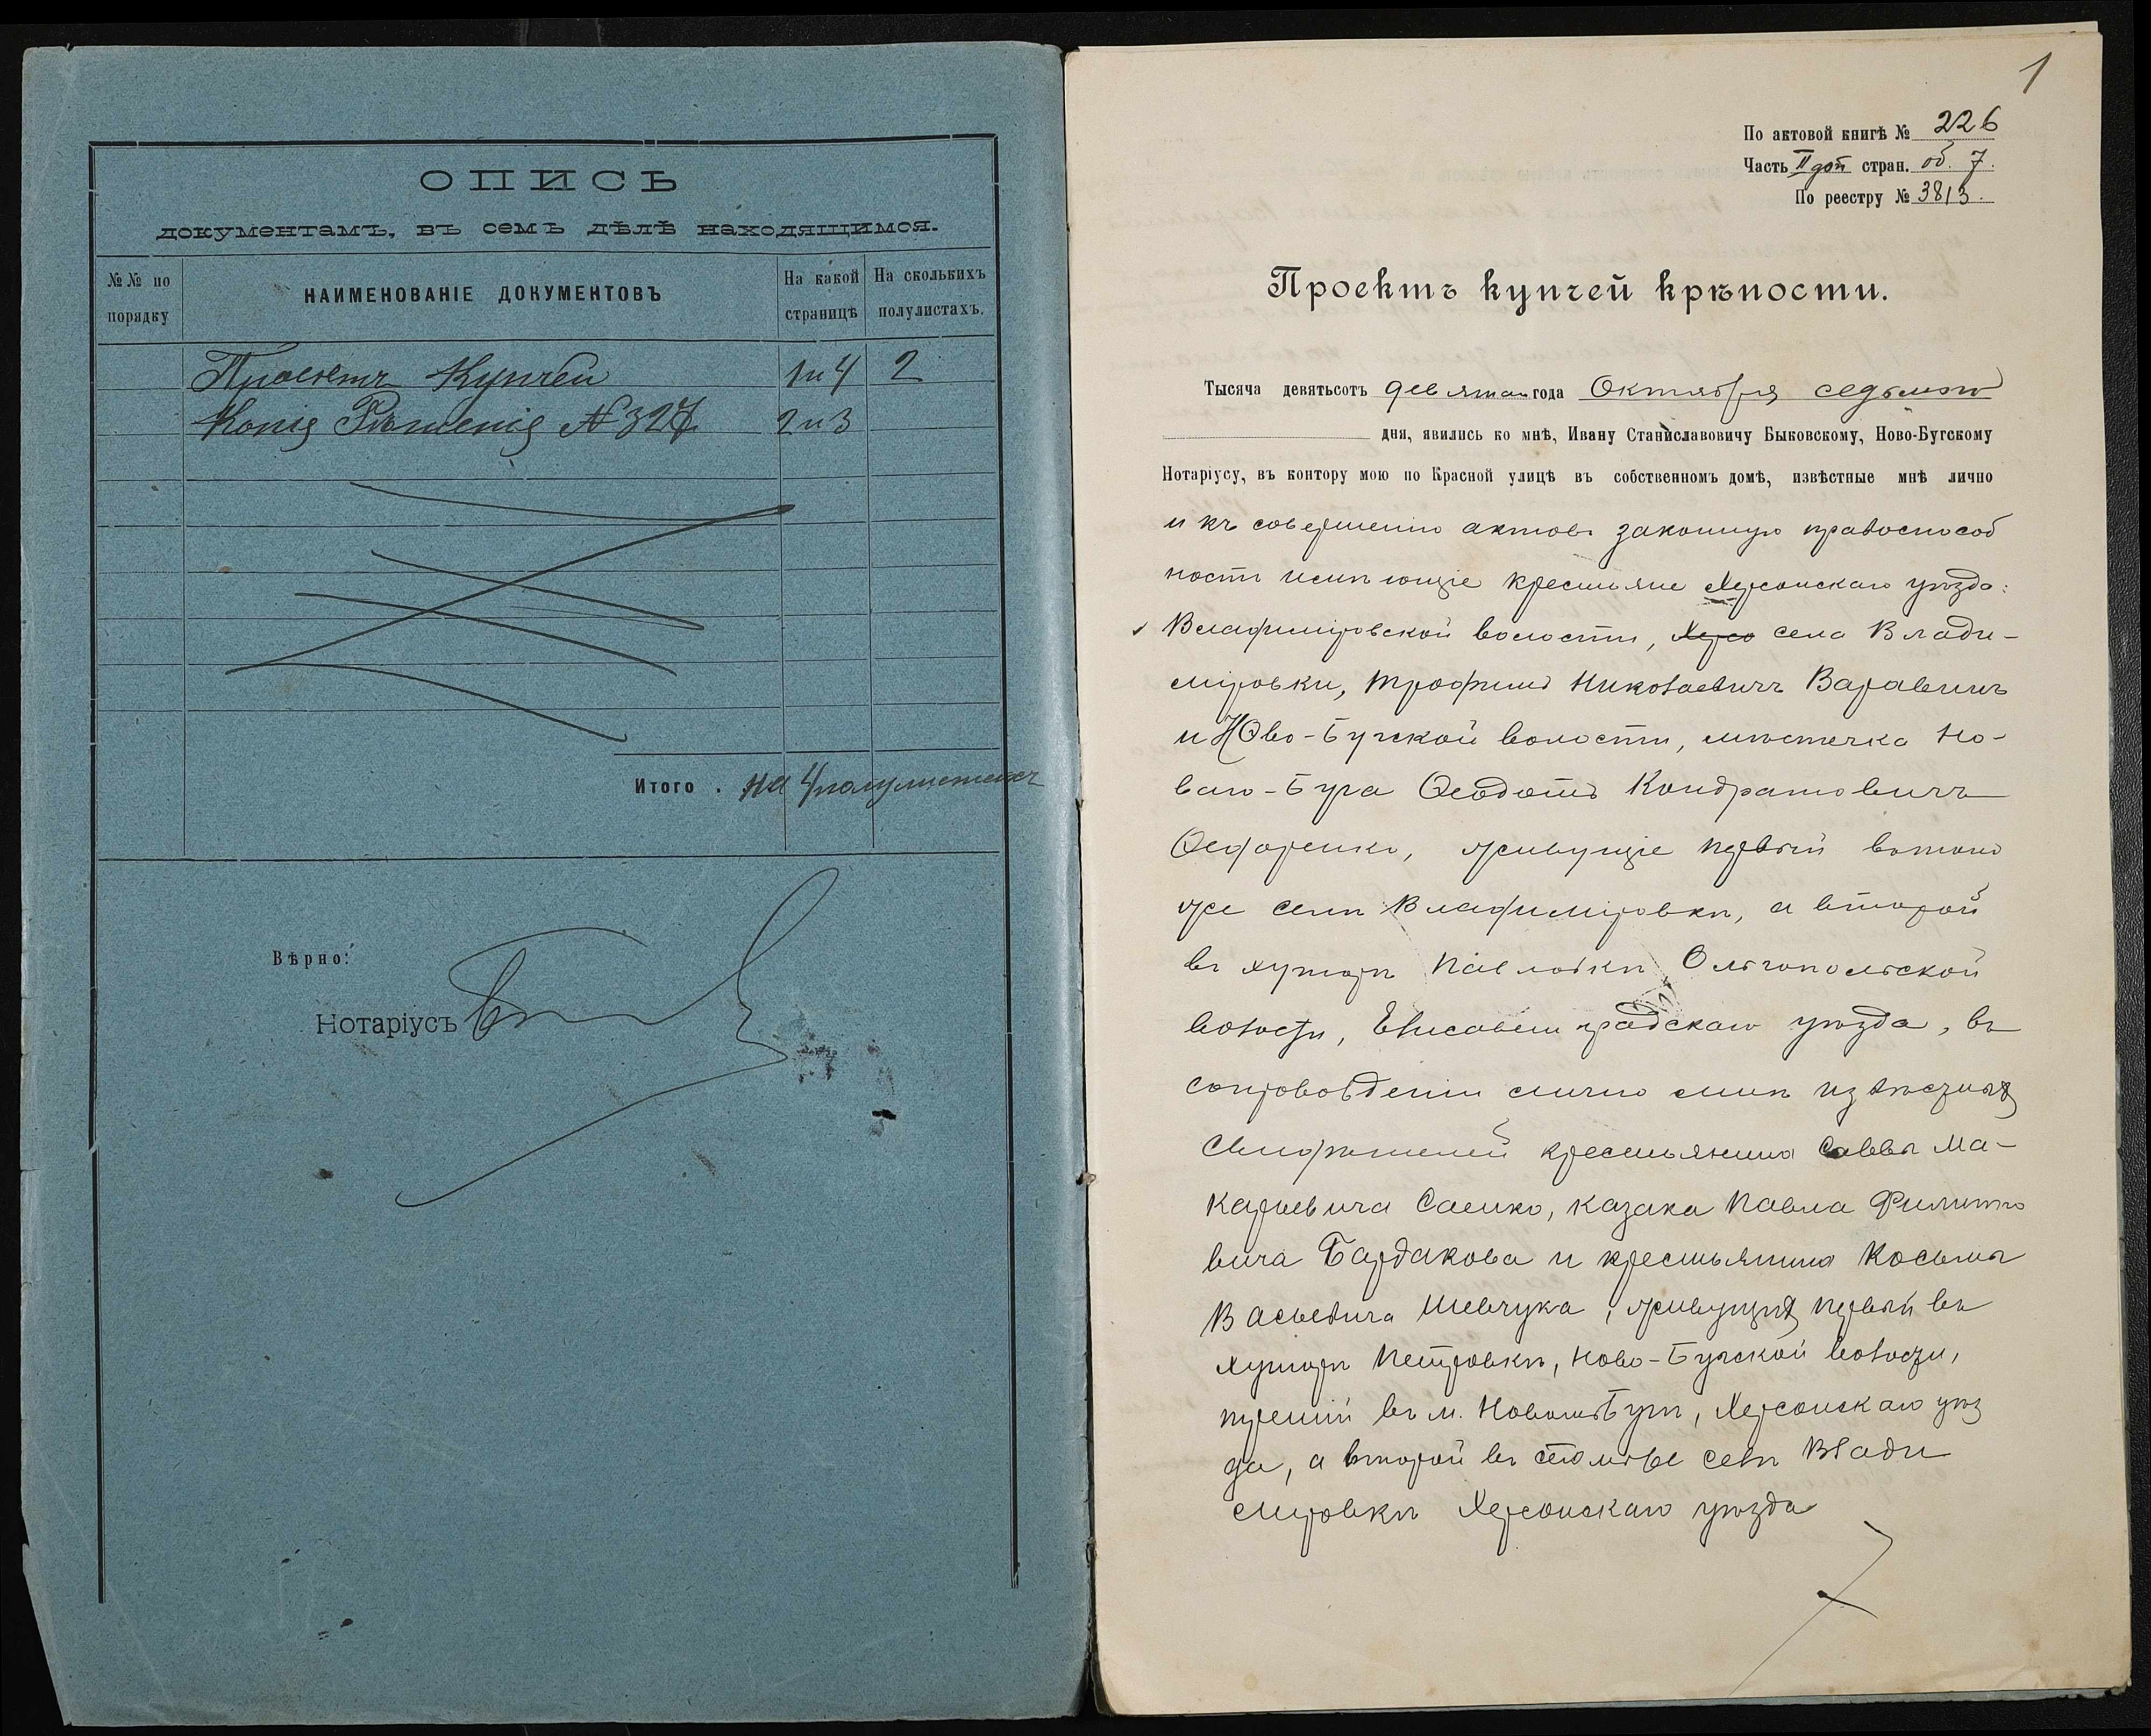 ОПИСЬ
документамъ, въ семъ дѣлѣ находящимся.
№№ по порядку
НАИМЕНОВАНІЕ ДОКУМЕНТОВЪ
На какой страницѣ
На сколькихъ полулистахъ.
Проектъ Купчей 1 и 4 2
Копія Рѣшенія № 327 2 и 3
Итого . на 4 полулистахъ
Вѣрно:
Нотаріусъ
1
По актовой книгѣ № 226
Часть II доп стран. об. 7.
По реестру № 3813.
Проектъ купчей крѣпости.
Тысяча девятьсотъ девятаго года Октября седьмого
дня, явились ко мнѣ, Ивану Станиславовичу Быковскому, Ново-Бугскому
Нотаріусу, въ контору мою по Красной улицѣ въ собственномъ домѣ, извѣстные мнѣ лично
и къ совершенію актовъ законную правоспособ
ность имѣющіе крестьяне Херсонскаго уѣзда:
Владимировской волости, Херсо села Влади-
міровки, Трофимъ Николаевичъ Варавинъ
и Ново-Бугской волости, мѣстечка Но-
ваго-Буга Ѳеодотъ Кондратовичъ
Ѳедоренко, живущіе первый въ томъ
же селѣ Владиміровкѣ, а второй
въ хуторѣ Павловкѣ, Ольгопольской
волости, Елисаветградскаго уѣзда, въ
сопровожденіи лично мнѣ извѣстныхъ
свидѣтелей крестьянина Саввы Ма-
карьевича Саенко, казака Павла Филиппо
вича Бардакова и крестьянина Косьмы
Васьевича Шевчука, живущихъ первый въ
хуторѣ Петровкѣ, Ново-Бугской волости,
третій въ м. Новомъ-Бугѣ, Херсонскаго уѣз
да, а второй въ селѣ Влади
міровкѣ Херсонскаго уѣзда